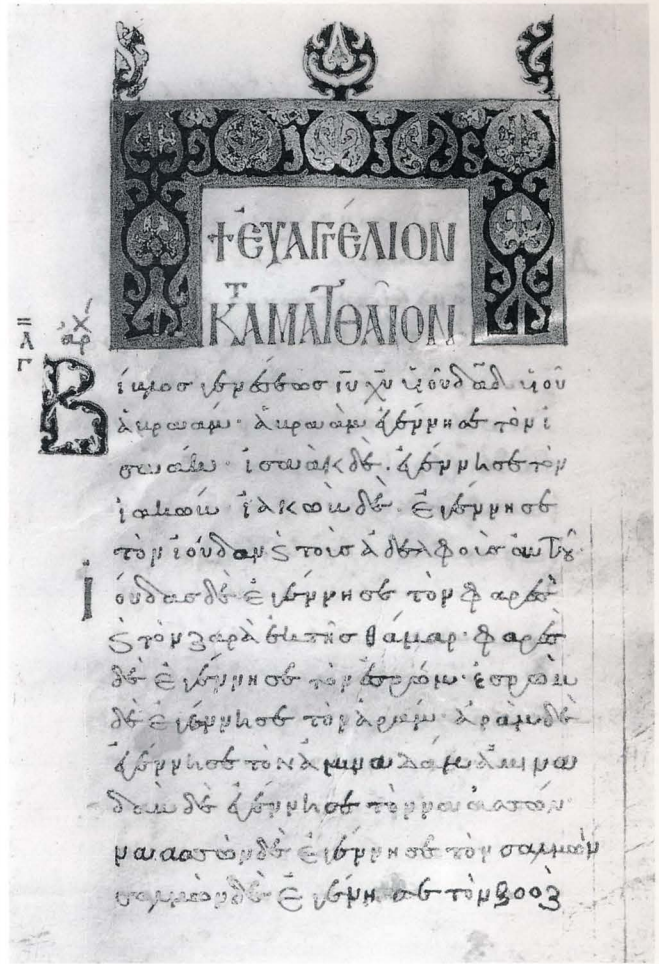 + ἐυαγγέλιον
κατὰ Ματθαῖον
ἀρχ
λγ
Βίβλος γενέσεως ιυ χυ υἱοῦ δαδ υἱοῦ
ἀβραάμ· ἀβραὰμ ἐγέννησε τὸν ἰ
σαάκ· ἰσαὰκ δὲ ἐγέννησε τὸν
ἰακώβ· ἰακὼβ δὲ ἐγέννησε
τὸν ἰούδαν ϛ τοῖσ ἀδελφοῖσ αυτου·
ἰούδασ δὲ ἐγέννησε τὸν φαρὲσ
ϛ τὸν ζαρὰ ἐκ τῆσ θάμαρ· φαρὲσ
δὲ ἐγέννησε τὸν ἐσρώμ· ἐσρὼμ
δὲ ἐγέννησε τὸν ἀράμ· ἀρὰμ δὲ
ἐγέννησε τὸν ἀμιναδάμ· ἀμινα
δὰμ δὲ ἐγέννησε τὸν ναασσών·
ναασσὼν δὲ ἐγέννησε τὸν σαλμών
σαλμὼν δὲ ἐγέννησε τὸν βοοζ